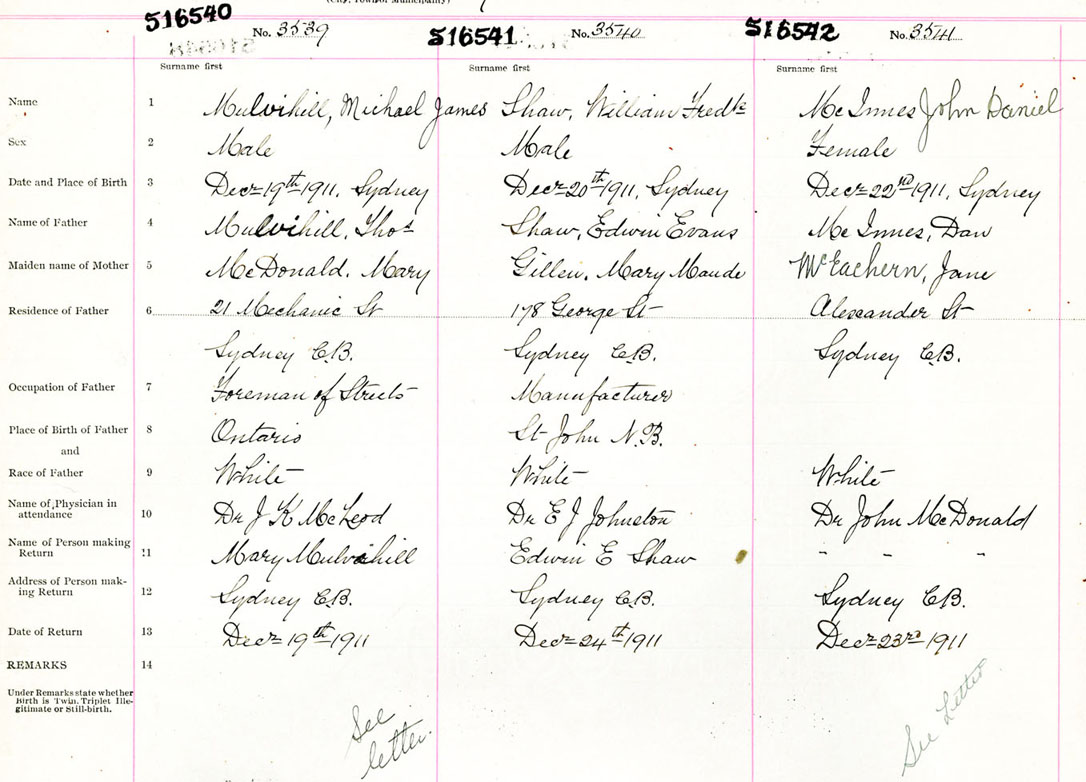 (City, Town or Municipality)
516540 No. 3539 516541 No. 3540 516542 No. 3541
Surname first Surname first Surname first
Name 1 Mulvihill, Michael James Shaw, William Fredk McInnes John Daniel
Sex 2 Male Male Female
Date and Place of Birth 3 Decr 19th 1911, Sydney Decr 20th 1911, Sydney Decr 22nd 1911, Sydney
Name of Father 4 Mulvihill, Thos Shaw, Edwin Evans McInnes, Dan
Maiden name of Mother 5 McDonald, Mary Gillen, Mary Maude McEachern, Jane
Residence of Father 6 21 Mechanic St 178 George St Alexander St
Sydney C.B. Sydney C.B. Sydney C.B.
Occupation of Father 7 Foreman of Streets Manufacturer
Place of Birth of Father 8 Ontario St John N.B.
and
Race of Father 9 White White White
Name of Physician in
attendance 10 Dr J K McLeod Dr E J Johnston Dr John McDonald
Name of Person making
Return 11 Mary Mulvihill Edwin E Shaw " " "
Address of Person mak-
ing Return 12 Sydney C.B. Sydney C.B. Sydney C.B.
Date of Return 13 Decr 19th 1911 Decr 24th 1911 Decr 23rd 1911
REMARKS 14
Under Remarks state whether
Birth is Twin, Triplet Ille-
gitimate or Still-birth.
See
letter.
See Letter